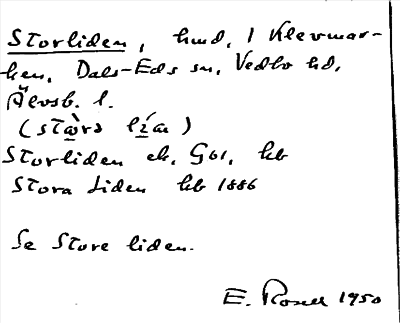 Storliden, hmd, 1 Klevmar-
ken, Dals-Eds sn, Vedbo hd,
Älvsb. l.
(
Storliden ek, Gbl, kb
Stora Liden kb 1886
Se Store liden.
E. Rosell 1950